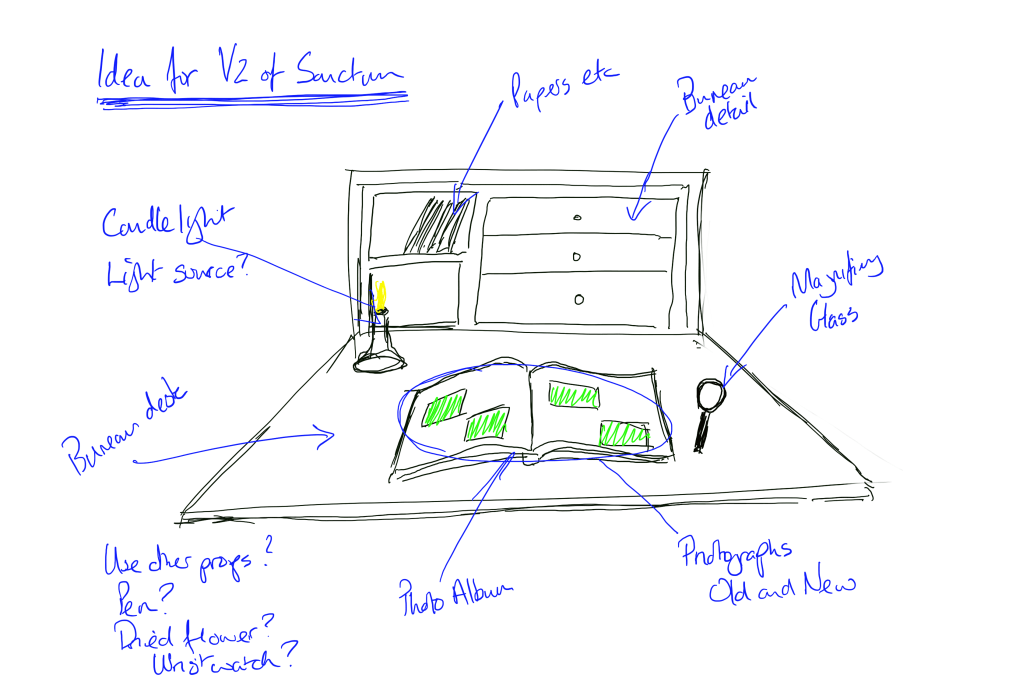 Idea for V2 of Sanctum
Papers etc
Bureau
detail
Candlelight
Light source?
Magnifying
Glass
Bureau desk
Use other props?
Pen?
Dried flower?
Wristwatch?
Photo Album
Photographs
Old and New